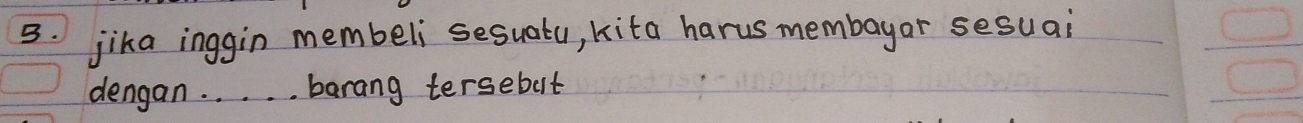 3. jika inggin membeli sesuatu, kita harus membayar sesuai
dengan......barang tersebut